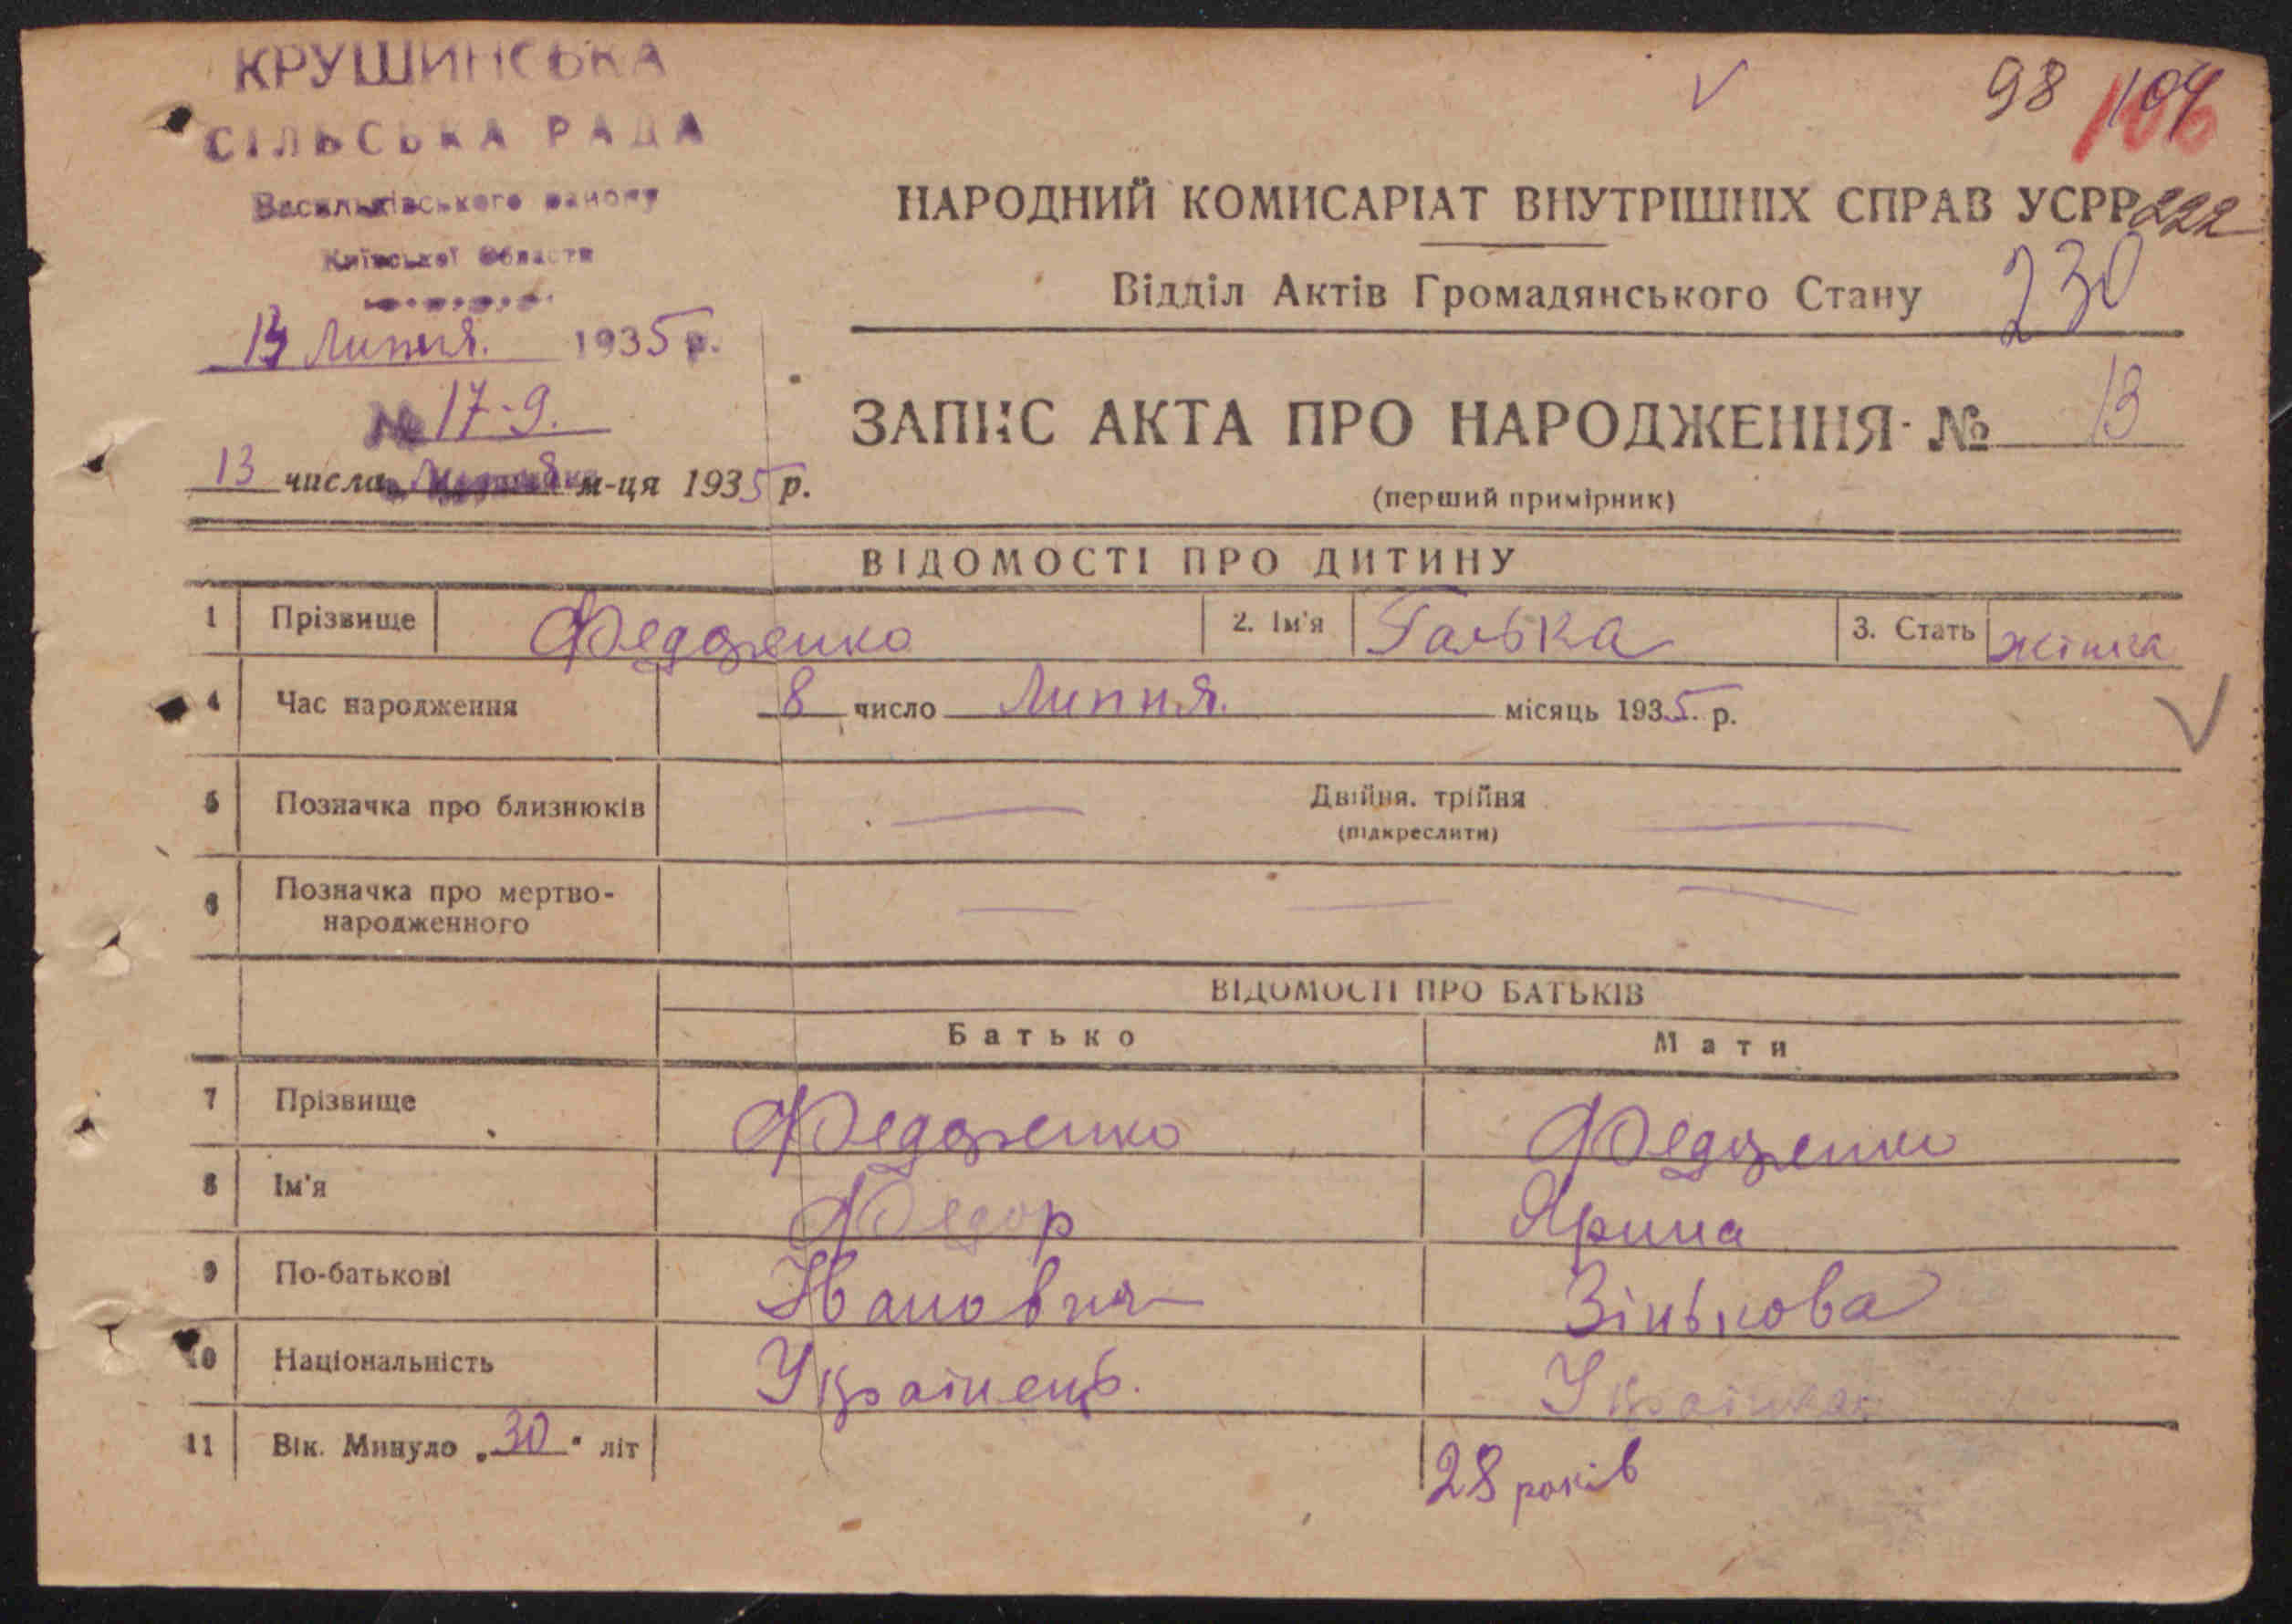 КРУШИНСЬКА
СІЛЬСЬКА РАДА
Васильківського району
Київської Области
13 Липня. 1935 р.
№ 17-9.
13 числа м-ця 1935 р.
98 104
106
НАРОДНИЙ КОМИСАРІАТ ВНУТРІШНІХ СПРАВ УСРР 222
Відділ Актів Громадянського Стану 230
ЗАПИС АКТА ПРО НАРОДЖЕННЯ № 13
(перший примірник)
ВІДОМОСТІ ПРО ДИТИНУ
1 Прізвище Федоренко 2. Ім'я Галька 3. Стать жінка
4 Час народження 8 число Липня. місяць 1935. р.
5 Позначка про близнюків Двійня, трійня
(підкреслити)
6 Позначка про мертво-
народженного
ВІДОМОСТІ ПРО БАТЬКІВ
Батько Мати
7 Прізвище Федоренко Федоренко
8 Ім'я Федор Ярина
9 По-батькові Іванович Зінькова
10 Національність Українець. Українка
11 Вік. Минуло „30" літ 28 років